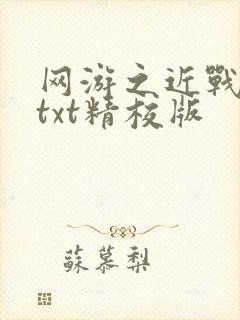 网游之近戰
txt精校版
蘇慕梨